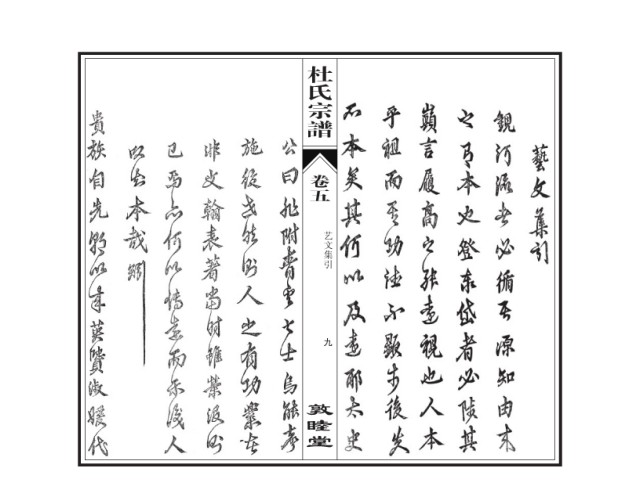 藝文集引
觀河流者必循其源知由来
之有本也登泰岱者必陟其
巔言履高之能遠視也人本
乎祖而其功德不顯於後
不本矣其何以及遠耶太史
杜氏宗譜
卷五
艺文集引
九
敦睦堂
公曰非附青雲之士烏能
施後世然則人之有功業
非文翰表著當时雖榮没則
已焉亦何以傳遠而示後人
以知本哉
貴族自先朝以来英賢淑媛代